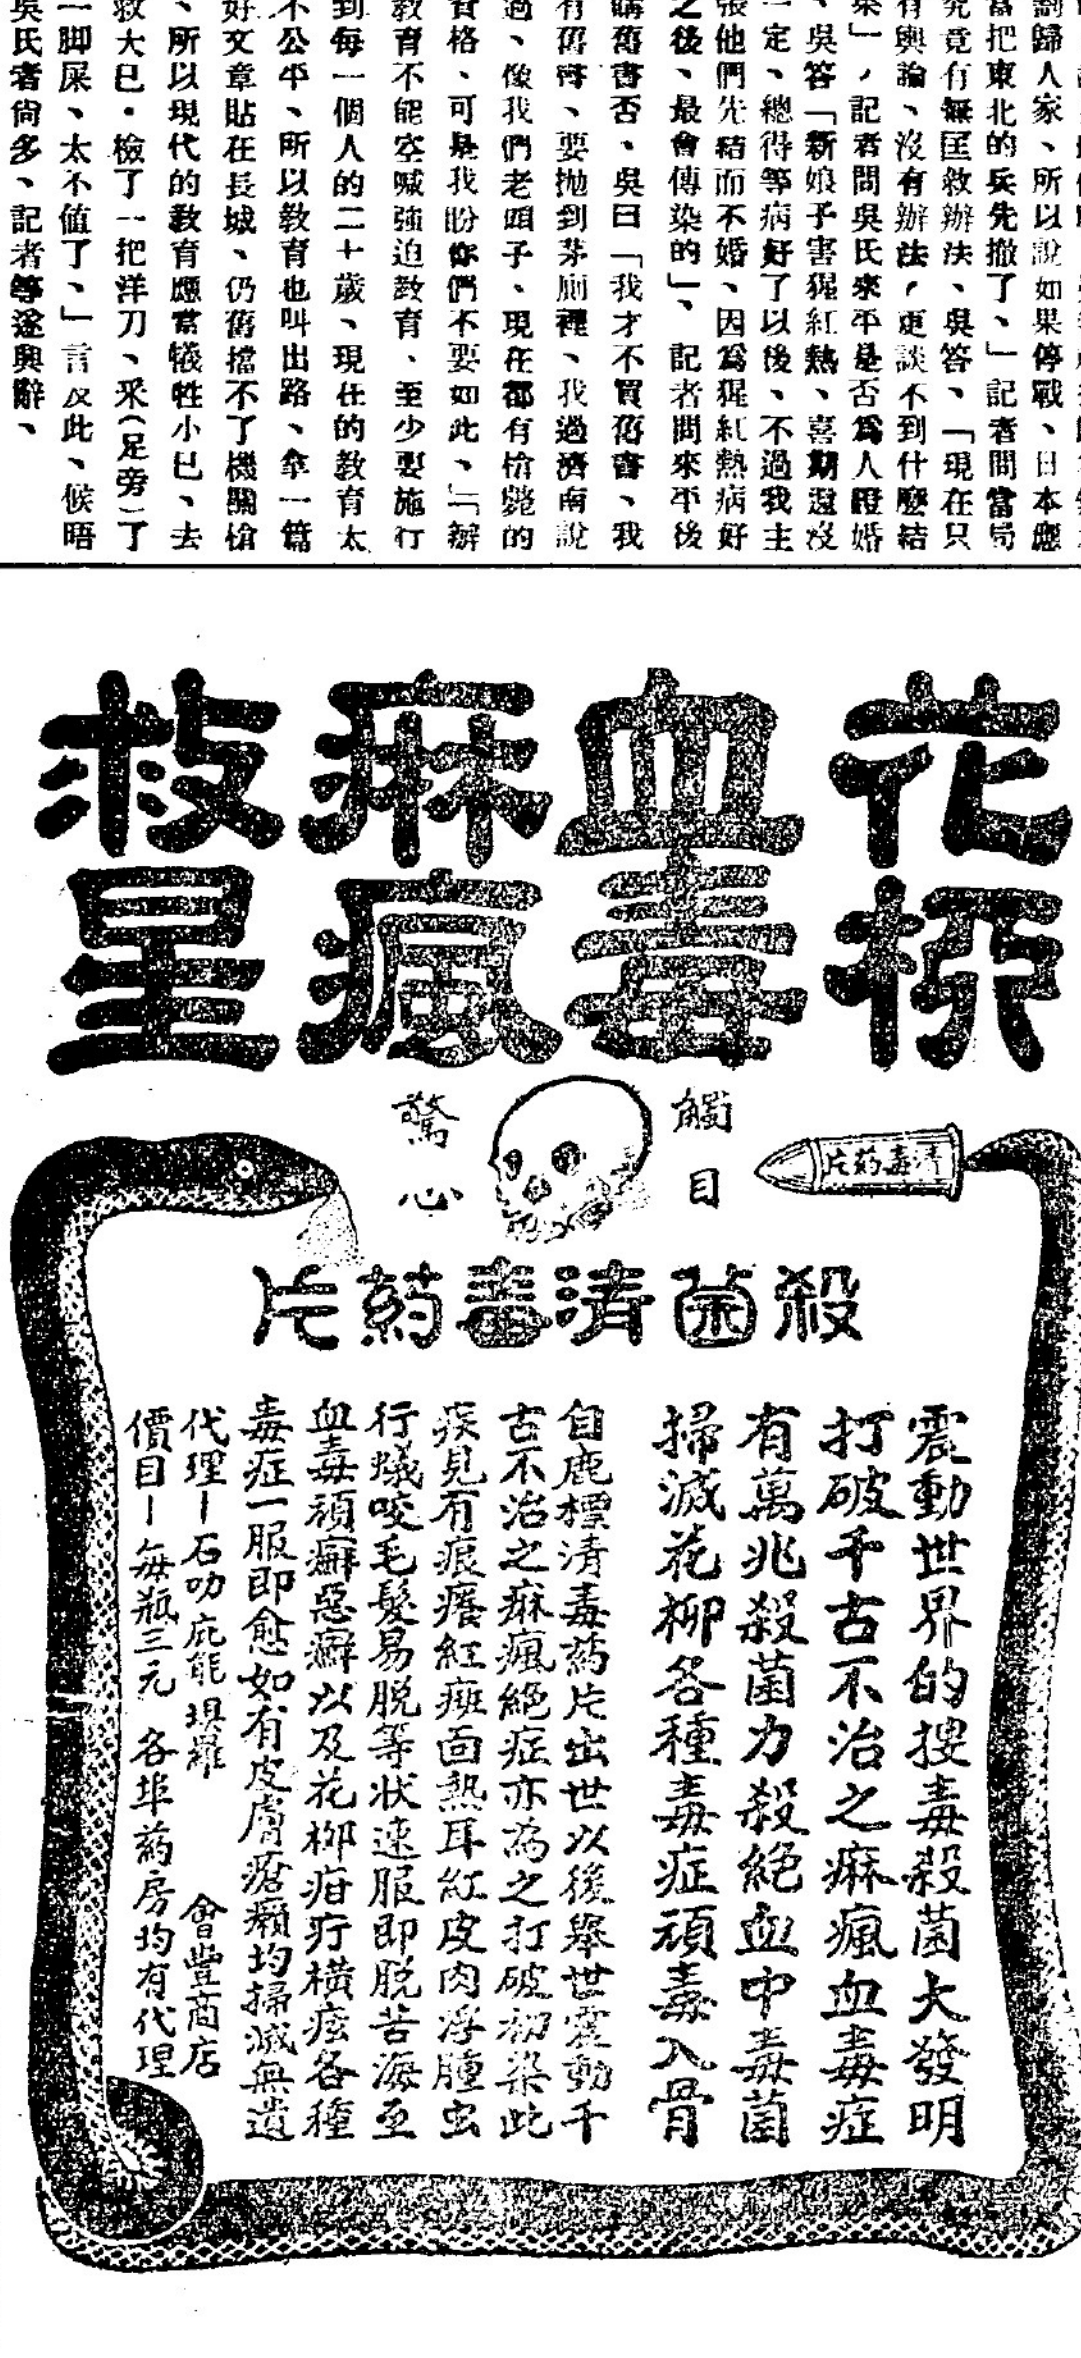 劃歸人家、所以說如果停戰、日本應
當把東北的兵先撤了、」記者問當局
究竟有無匡救辦法、吳答、「現在只
有輿論、沒有辦法，更談不到什麼結
果」，記者問吳氏來平是否爲人證婚
、吳答「新娘子害猩紅熱、喜期還沒
一定、總得等病好了以後、不過我主
張他們先結而不婚、因爲猩紅熱病好
之後、最會傳染的」、記者問來平後
購舊書否、吳曰「我才不買舊書、我
有舊書、要拋到茅廁裡、我過濟南說
過、像我們老頭子、現在都有槍斃的
資格、可是我盼你們不要如此、」「辦
教育不能空喊強迫教育、至少要施行
到每一個人的二十歲、現在的教育太
不公平、所以教育也叫出路、拿一篇
好文章貼在長城、仍舊擋不了機關槍
、所以現代的教育應當犧牲小己、去
救大己・檢了一把洋刀、釆（足旁）了
一脚屎、太不值了、」言及此、候晤
吳氏者尙多、記者等遂興辭、
花柳
血毒
痳瘋
救星
觸目
驚心
清毒药片
殺菌清毒葯片
震動世界的搜毒殺菌大發明
打破千古不治之痳瘋血毒症
有萬兆殺菌力殺絕血中毒菌
掃滅花柳各種毒症頑毒入骨
自鹿標清毒葯片出世以後舉世震動千
古不治之痳瘋絕症亦為之打破初染此
疾見有痕癢紅斑面熱耳紅皮肉浮腫虫
行蟻咬毛髮易脱等狀速服即脱苦海至
血毒頑癬惡癬以及花柳疳疔橫痃各種
毒症一服即愈如有皮膚瘡癩均掃滅無遺
代理－石叻庇能埧羅 會豐商店
價目－每瓶三元 各埠葯房均有代理